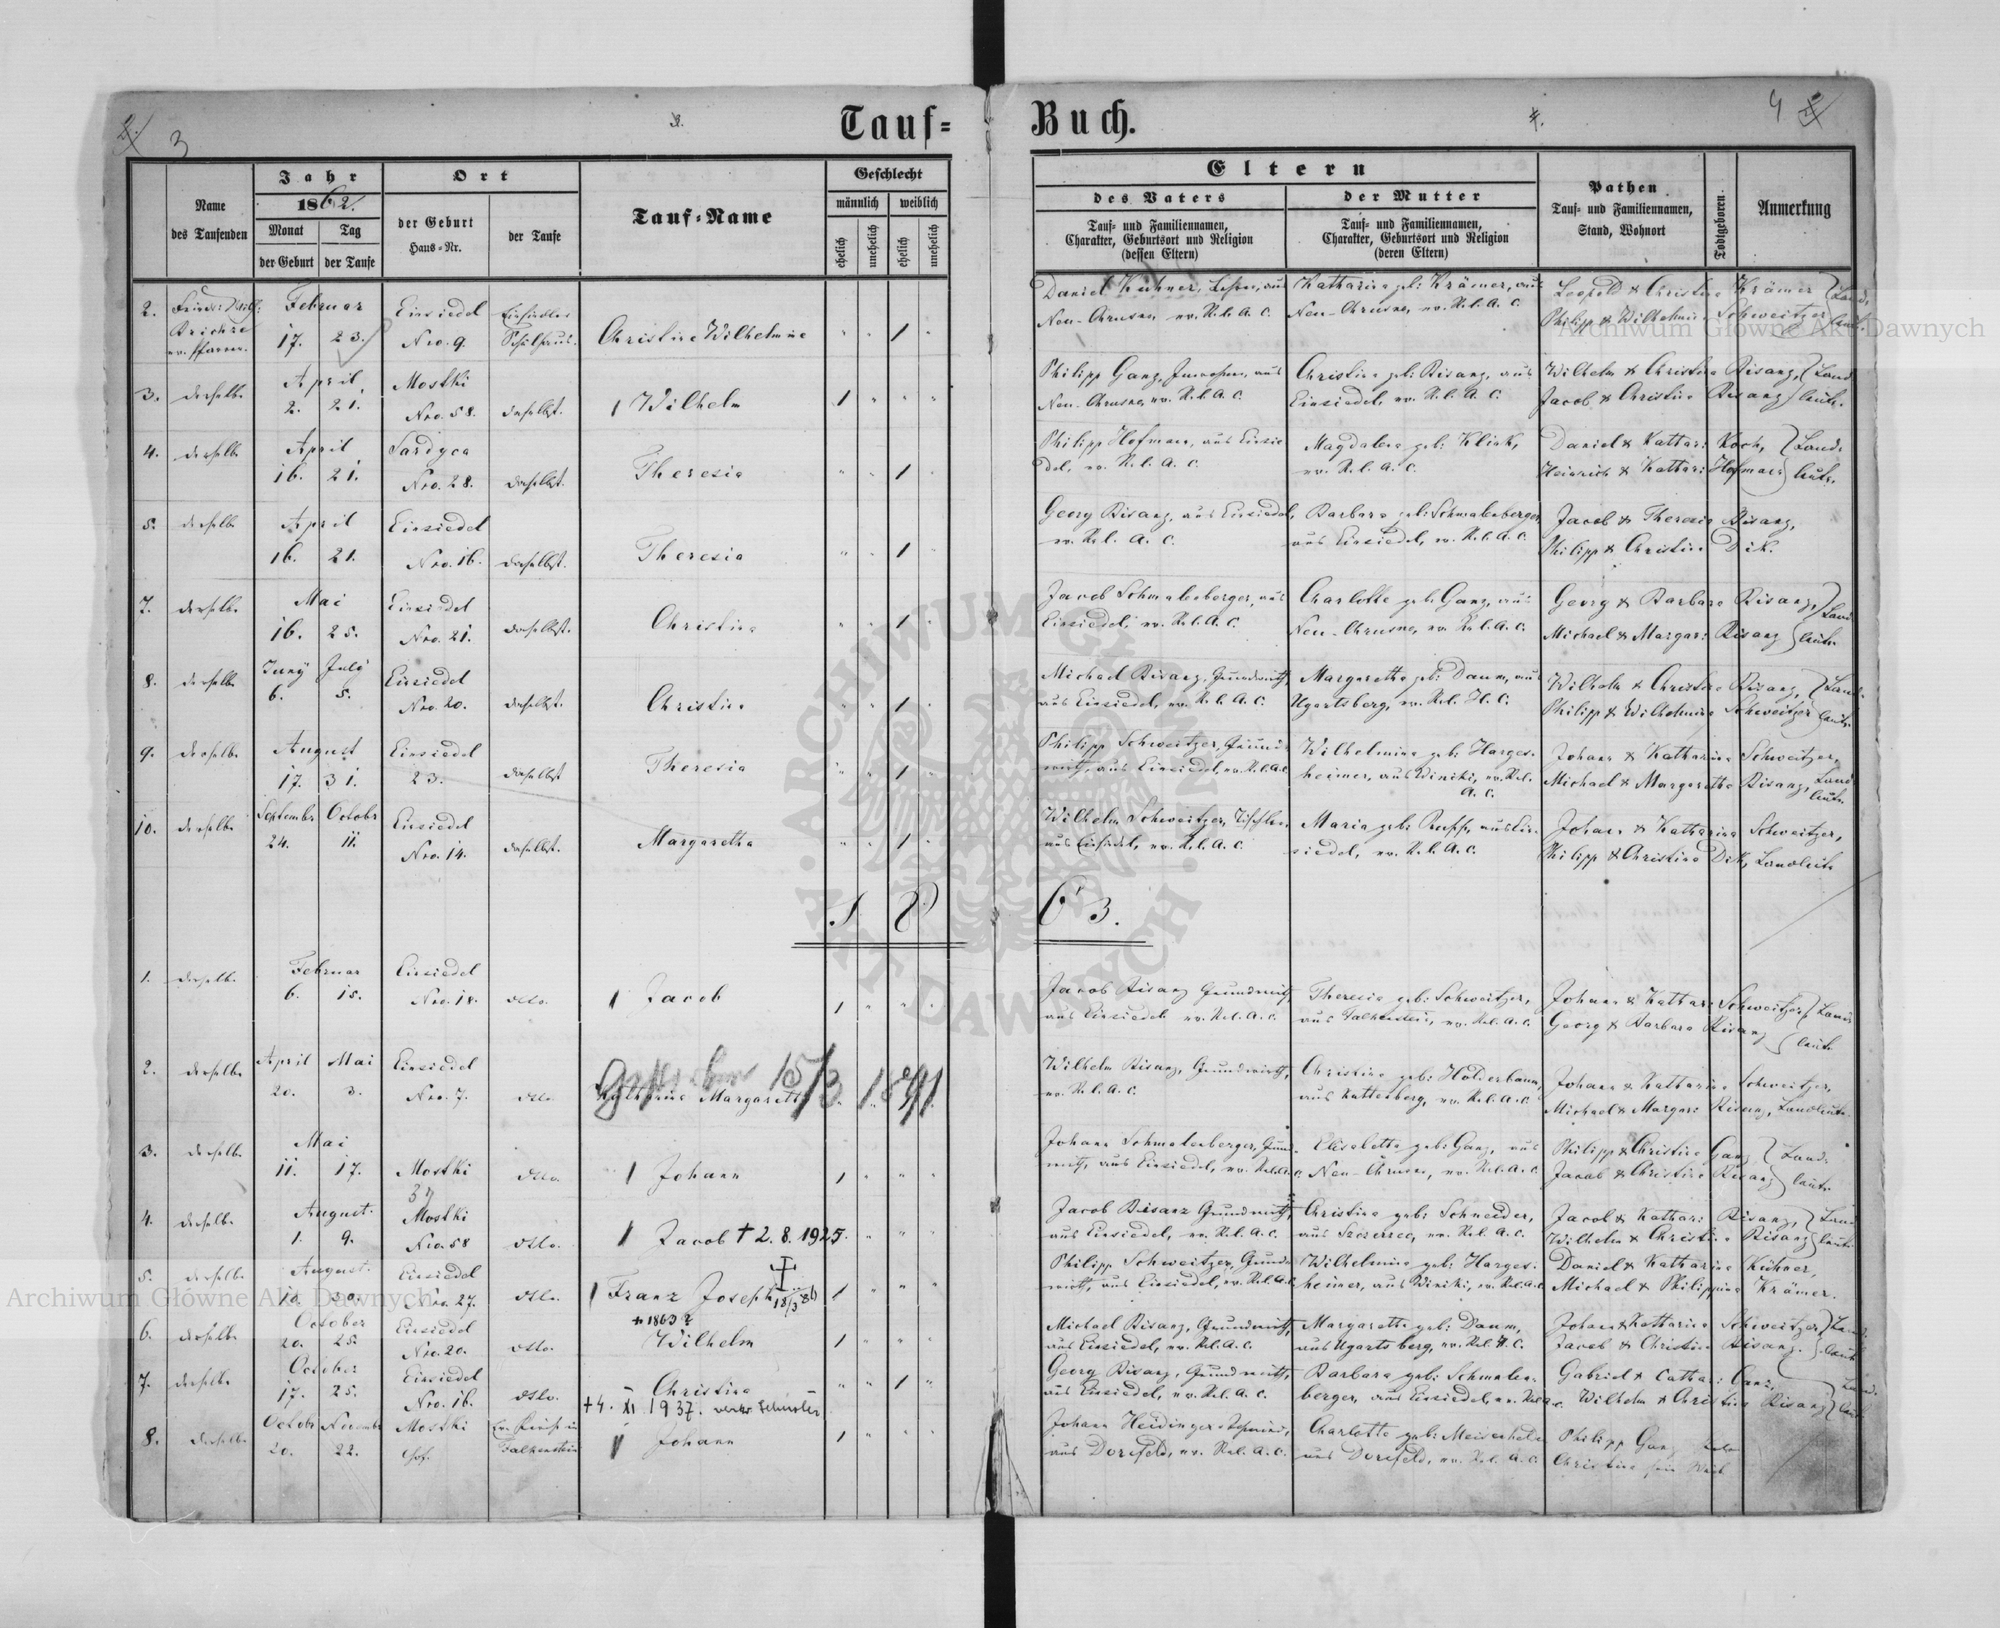 3
3.
Tauf=
Buch.
4.
4
Name
des Taufenden
Jahr
1862.
Monat
der Geburt
Tag
der Taufe
Ort
der Geburt
Haus=Nr.
der Taufe
Tauf=Name
Geschlecht
männlich
weiblich
ehelich
unehelich
ehelich
unehelich
Eltern
des Vaters
Tauf= und Familiennamen,
Charakter, Geburtsort und Religion
(dessen Eltern)
der Mutter
Tauf= und Familiennamen,
Charakter, Geburtsort und Religion
(deren Eltern)
Pathen
Tauf= und Familiennamen,
Stand, Wohnort
Todtgeboren
Anmerkung
2.
ev. Pfarrer.
Februar
17. 23.
Einsiedel
Nro. 9.
Einsiedler
Schulhaus.
Christine Wilhelmine
1
Daniel Kühner, Lehrer, aus
Neu-Chrusno, ev. Rel. A. C.
Katharina geb: Krämer, aus
Neu-Chrusno, ev. Rel. A. C.
Leopold & Christine Krämer
Philipp & Wilhelmine Schweitzer
Land-
leute.
3. derselbe
April
2. 21.
Mostki
Nro. 58.
daselbst.
1 Wilhelm
1
Philipp Ganz, Inwohner, aus
Neu-Chrusno, ev. Rel. A. C.
Christine geb: Bisanz, aus
Einsiedel, ev. Rel. A. C.
Wilhelm & Christine Bisanz,
Jacob & Christine Bisanz
Land-
leute.
4. derselbe
April
16. 21.
Sardyca
Nro. 28.
daselbst.
Theresia
1
Philipp Hofman, aus Einsie
del, ev. Rel. A. C.
Magdalena geb: Klink,
ev. Rel. A. C.
Daniel & Kathar: Koch,
Heinrich & Kathar: Hofman
Land-
leute.
5. derselbe
April
16. 21.
Einsiedel
Nro. 16.
daselbst.
Theresia
1
Georg Bisanz, aus Einsiedel,
ev. Rel. A. C.
Barbara geb: Schmalenberger,
aus Einsiedel, ev. Rel. A. C.
Jacob & Theresia Bisanz,
Philipp & Christine Dik.
7. derselbe
Mai
16. 25.
Einsiedel
Nro. 21.
daselbst.
Christine
1
Jacob Schmalenberger, aus
Einsiedel, ev. Rel. A. C.
Charlotte geb: Ganz, aus
Neu-Chrusno, ev. Rel. A. C.
Georg & Barbara Bisanz,
Michael & Margar: Bisanz
Land-
leute
8. derselbe
Juny July
6. 5.
Einsiedel
Nro. 20.
daselbst.
Christine
1
Michael Bisanz, Grundwirth,
aus Einsiedel, ev. Rel. A. C.
Margaretha geb: Daum, aus
Ugartsberg, ev. Rel. H. C.
Wilhelm & Christine Bisanz,
Philipp & Wilhelmine Schweitzer
Land-
leute.
9. derselbe
August
17. 31.
Einsiedel
23.
daselbst
Theresia
1
Philipp Schweitzer, Grund-
wirth, aus Einsiedel, ev. Rel. A. C.
Wilhelmine geb: Harges-
heimer, aus Winiki, ev. Rel.
A. C.
Johann & Katharina Schweitzer,
Michael & Margaretha Bisanz,
Land-
leute
10. derselbe
September October
24. 11.
Einsiedel
Nro. 14.
daselbst.
Margaretha
1
Wilhelm Schweitzer, Tischler,
aus Einsiedel, ev. Rel. A. C.
Maria geb: Rupp, aus Ein-
siedel, ev. Rel. A. C.
Johann & Katharina Schweitzer,
Philipp & Christine Dik, Landleute
1 8 6 3.
1. derselbe.
Februar
6. 15.
Einsiedel
Nro. 18.
dtto.
1 Jacob
1
Jacob Bisanz Grundwirth,
aus Einsiedel ev. Rel. A. C.
Theresia geb: Schweitzer,
aus Falkenstein, ev. Rel. A. C.
Johann & Kathar: Schweitzer
Georg & Barbara Bisanz
Land-
leute
2. derselbe
April Mai
20. 3.
Einsiedel
Nro. 7.
dtto.
Katharina Margaretha
Gestorben 15/3 1891.
Wilhelm Bisanz, Grundwirth,
ev. Rel. A. C.
Christine geb: Holderbaum,
aus Kuttenberg, ev. Rel. A. C.
Johann & Katharina Schweitzer,
Michael & Margar: Bisanz, Landleute.
3. derselbe
Mai
11. 17.
Mostki
37
dtto.
1 Johann
1
Johann Schmalenberger, Grund-
wirth, aus Einsiedel, ev. Rel. A. C.
Elisabetha geb: Ganz, aus
Neu-Chrusno, ev. Rel. A. C.
Philipp & Christine Ganz
Jacob & Christine Bisanz
Land-
leute
4. derselbe.
August.
1. 9.
Mostki
Nro. 58
dtto.
1 Jacob † 2. 8. 1925.
Jacob Bisanz Grundwirth,
aus Einsiedel, ev. Rel. A. C.
Christine geb: Schneider,
aus Szczerzec, ev. Rel. A. C.
Jacob & Kathar: Bisanz,
Wilhelm & Christine Bisanz
Land-
leute
5. derselbe
August.
30.
Einsiedel
Nro. 27.
dtto.
1 Franz Joseph
1
Philipp Schweitzer, Grund-
wirth, aus Einsiedel, ev. Rel. A. C.
Wilhelmine geb: Harges-
heimer, aus Winiki, ev. Rel. A. C.
Daniel & Katharina Kühner,
Michael & Philippine Krämer.
6. derselbe
October
20. 25.
Einsiedel
Nro. 20.
dtto.
† 1863 ?
Wilhelm
1
Michael Bisanz, Grundwirth,
aus Einsiedel, ev. Rel. A. C.
Margaretha geb: Daum,
aus Ugartsberg, ev. Rel. H. C.
Johann & Katharina Schweitzer
Jacob & Christine Bisanz.
Land-
leute
7. derselbe
October
17. 25.
Einsiedel
Nro. 16.
dtto.
Christine
†4. XI. 1937. verw. Schuster
1
Georg Bisanz, Grundwirth,
aus Einsiedel, ev. Rel. A. C.
Barbara geb: Schmalen-
berger, aus Einsiedel, ev. Rel. A. C.
Gabriel & Cathar: Ganz,
Wilhelm & Christine Bisanz
Land-
leute
8. derselbe
October November
20. 22.
Mostki
Hof.
Falkenstein
1 Johann
1
Johann Heidinger
aus Dornfeld, ev. Rel. A. C.
Charlotte geb:
aus Dornfeld, ev. Rel. A. C.
Philipp Ganz
Christine sein Weib
Archiwum Główne Akt Dawnych
Archiwum Główne Akt Dawnych
ARCHIWUM GŁÓWNE AKT DAWNYCH